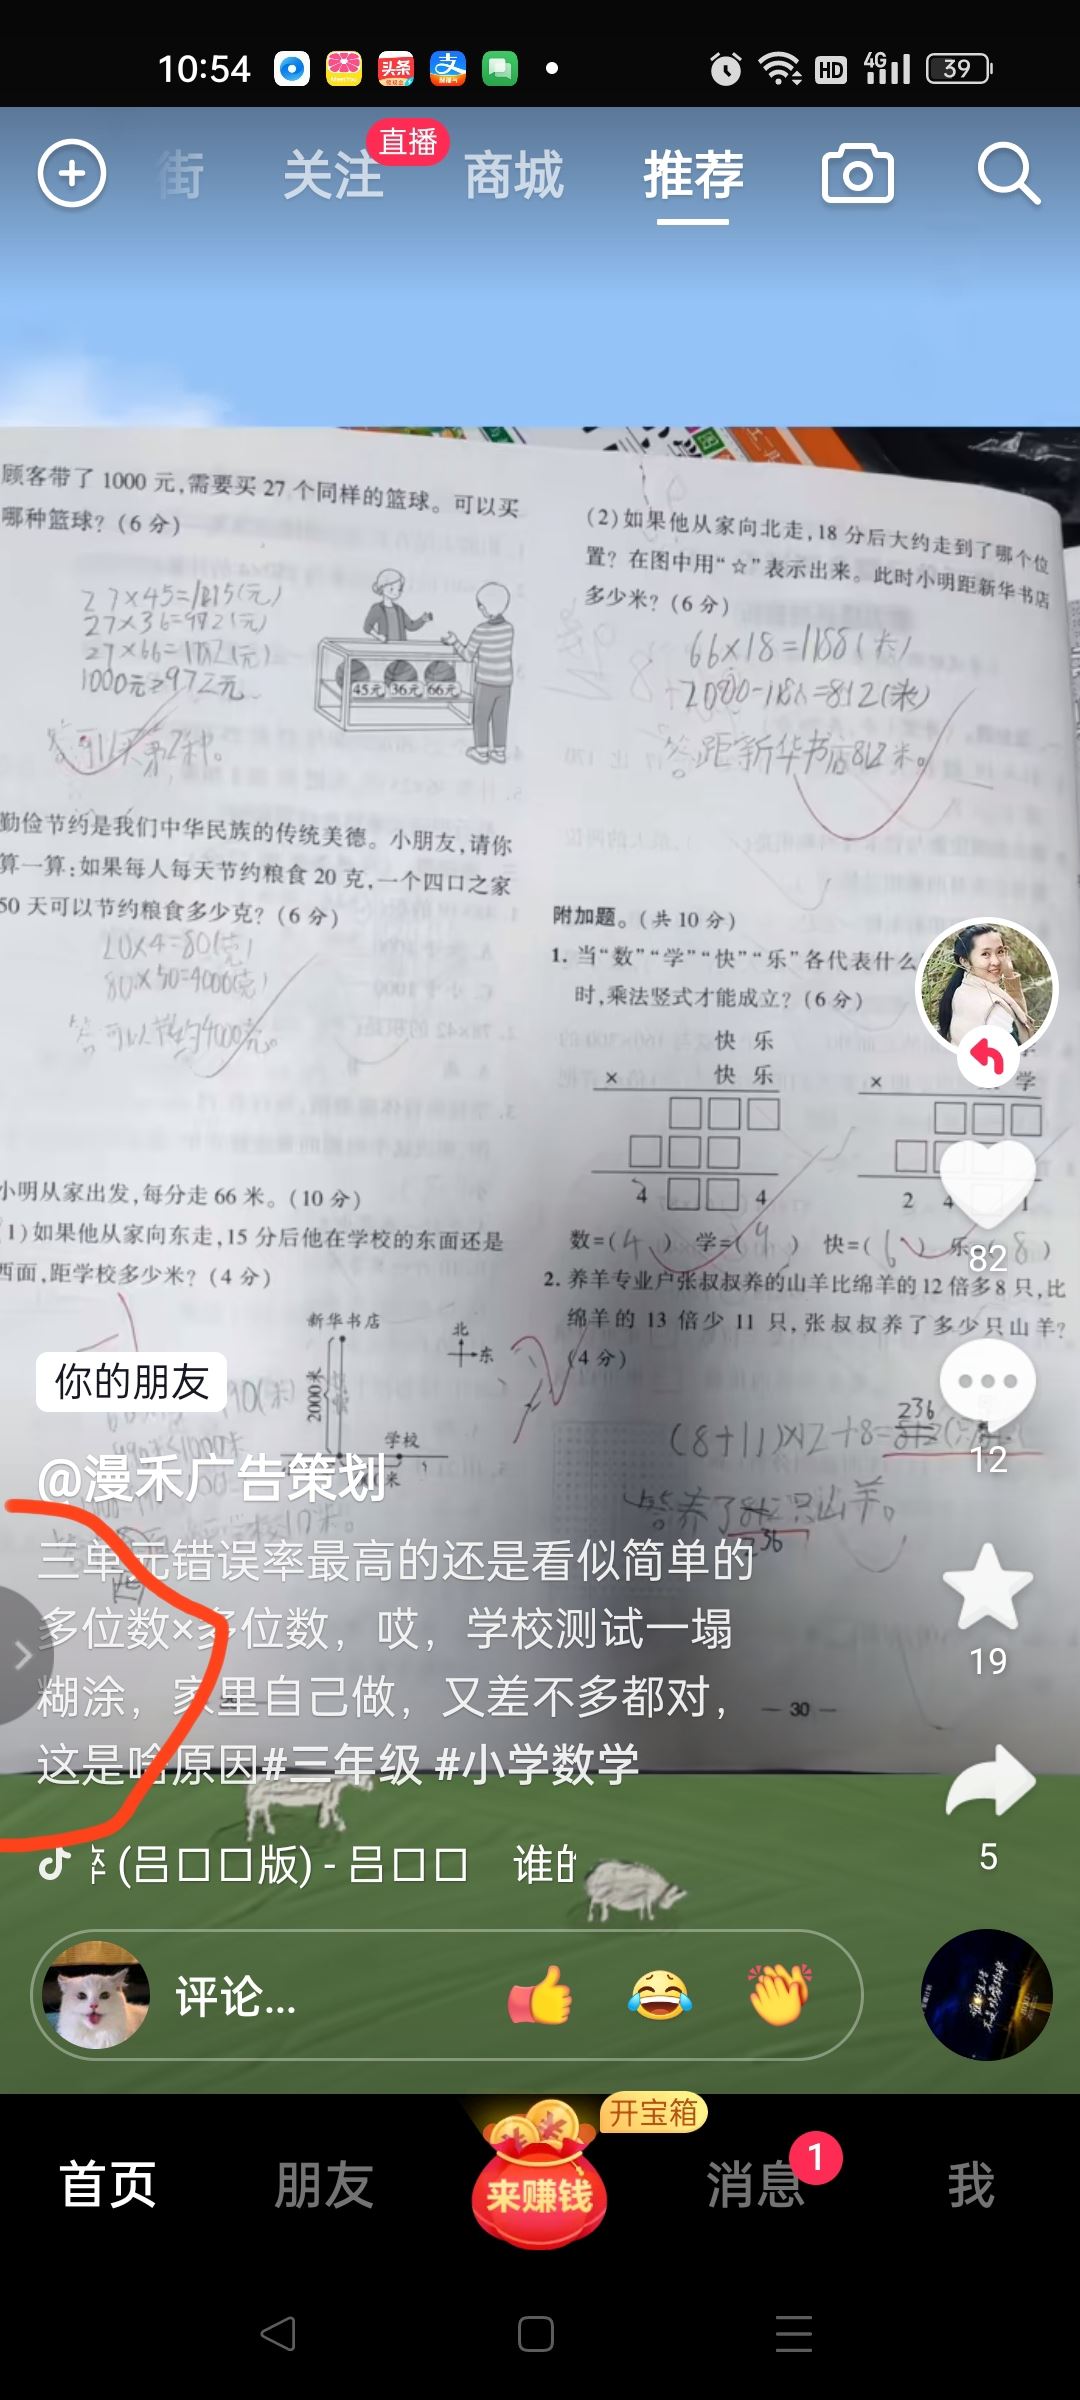 10:54
HD
4G
39
街
关注
直播
商城
推荐
顾客带了 1000 元,需要买 27 个同样的篮球。可以买
哪种篮球?(6 分)
27×36=972(元)
1000元≥972元
45元 36元 66元
勤俭节约是我们中华民族的传统美德。小朋友,请你
算一算:如果每人每天节约粮食 20 克,一个四口之家
50 天可以节约粮食多少克?(6 分)
20×4=80(克)
80×50=4000(克)
答:可以节约4000克。
小明从家出发,每分走 66 米。(10 分)
1)如果他从家向东走,15 分后他在学校的东面还是
西面,距学校多少米?(4 分)
新华书店
北
东
2000米
学校
米
(2)如果他从家向北走,18 分后大约走到了哪个位
置?在图中用“☆”表示出来。此时小明距新华书店
多少米?(6 分)
66×18=1188(米)
答:距新华书店812米。
附加题。(共 10 分)
1. 当“数”“学”“快”“乐”各代表什么
时,乘法竖式才能成立?(6 分)
快 乐
× 快 乐
4 □ □ 4
× 学
2 4 1
数=(4) 学=( ) 快=(6) 乐 (8)
2. 养羊专业户张叔叔养的山羊比绵羊的 12 倍多 8 只,比
绵羊的 13 倍少 11 只,张叔叔养了多少只山羊?
(4 分)
(8+11)×12+8=
236
答:养了 只山羊。
236
— 30 —
82
12
19
5
你的朋友
@漫禾广告策划
三单元错误率最高的还是看似简单的
多位数×多位数,哎,学校测试一塌
糊涂,家里自己做,又差不多都对,
这是啥原因#三年级 #小学数学
(吕口口版) - 吕口口 谁的
评论...
开宝箱
首页
朋友
来赚钱
消息
1
我